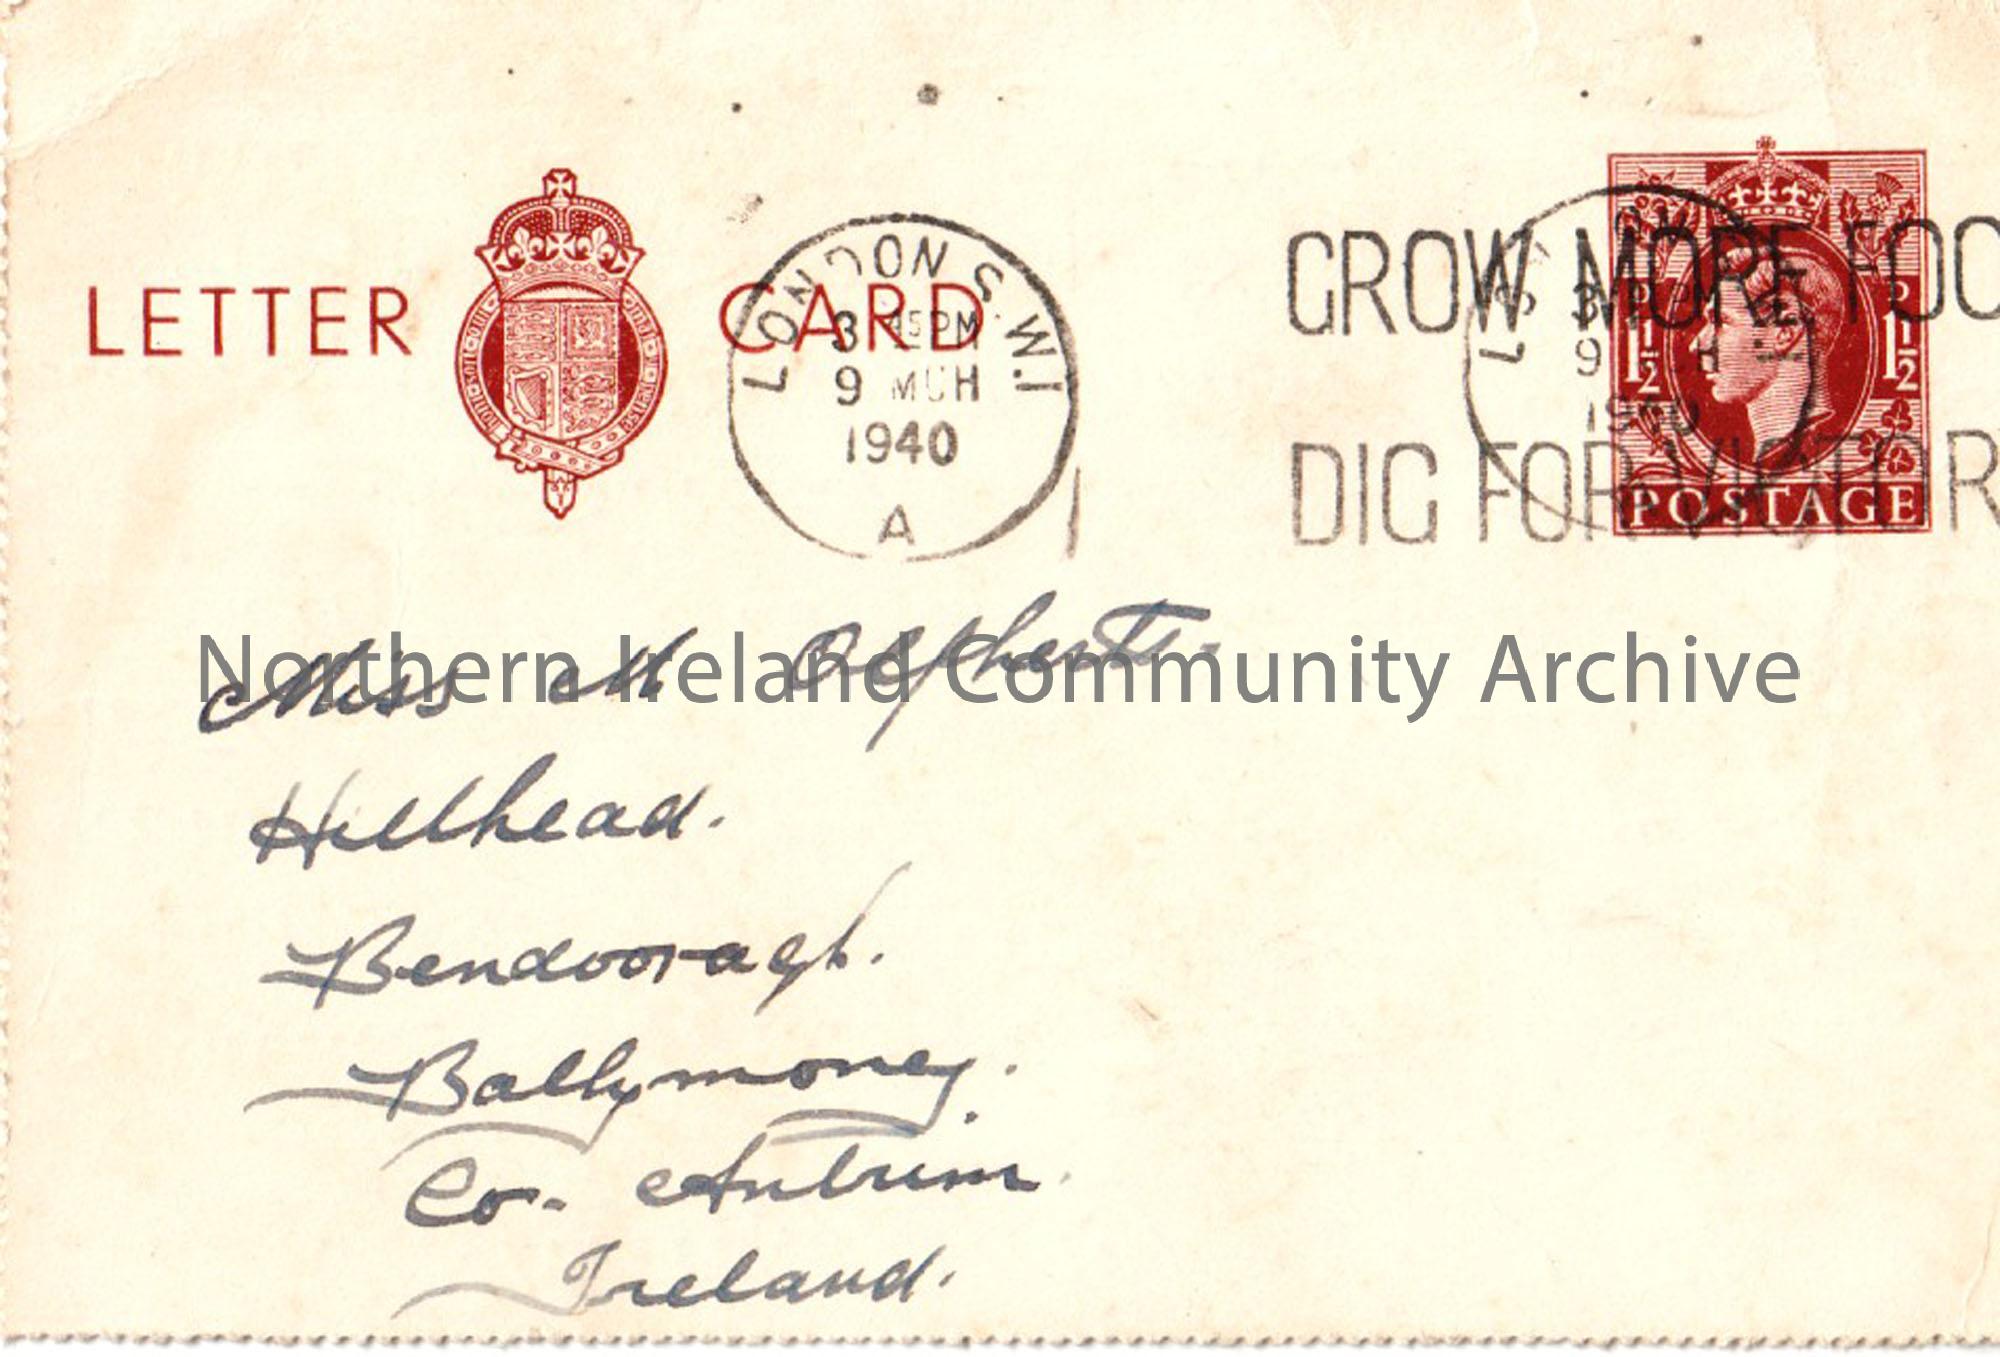 LETTER CARD
HONI SOIT QUI MAL Y PENSE
LONDON S.W.1
3 45PM
9 MCH
1940
A
GROW MORE FOO
DIG FOR VICTOR
1½ 1½
POSTAGE
Northern Ireland Community Archive
Miss M Olpherts
Hillhead.
Bendooragh.
Ballymoney.
Co. Antrim.
Ireland.